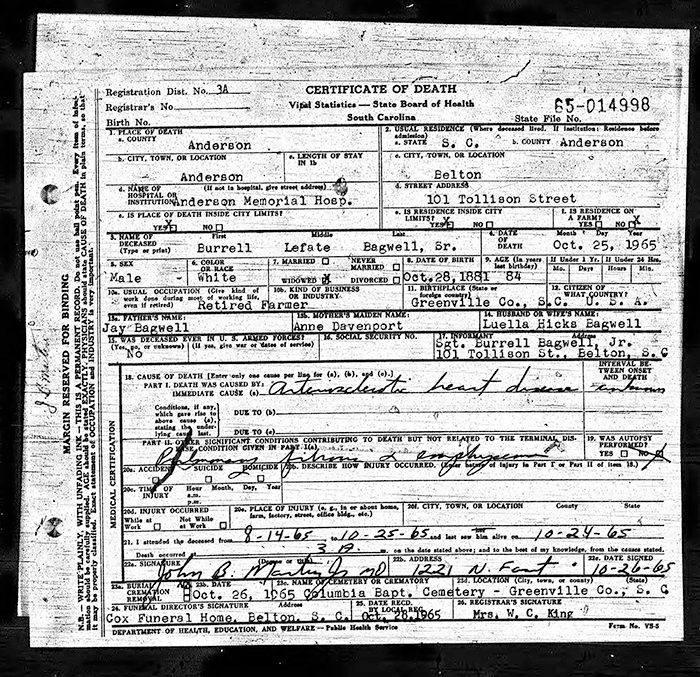 Registration Dist. No. 3A
CERTIFICATE OF DEATH
Registrar's No.
Vital Statistics — State Board of Health
65-014998
Birth No.
South Carolina
State File No.
1. PLACE OF DEATH
a. COUNTY
Anderson
2. USUAL RESIDENCE (Where deceased lived. If institution: Residence before admission)
a. STATE S. C. b. COUNTY Anderson
b. CITY, TOWN, OR LOCATION
Anderson
c. LENGTH OF STAY IN 1b
c. CITY, TOWN, OR LOCATION
Belton
d. NAME OF HOSPITAL OR INSTITUTION (If not in hospital, give street address)
Anderson Memorial Hosp.
d. STREET ADDRESS
101 Tollison Street
e. IS PLACE OF DEATH INSIDE CITY LIMITS?
YES X NO
e. IS RESIDENCE INSIDE CITY LIMITS?
YES X NO
f. IS RESIDENCE ON A FARM?
YES NO X
3. NAME OF DECEASED (Type or print)
First Middle Last
Burrell Lefate Bagwell, Sr.
4. DATE OF DEATH
Month Day Year
Oct. 25, 1965
5. SEX
Male
6. COLOR OR RACE
White
7. MARRIED NEVER MARRIED
WIDOWED X DIVORCED
8. DATE OF BIRTH
Oct. 28, 1881
9. AGE (In years last birthday)
84
If Under 1 Yr. If Under 24 Hrs.
Mo. Days Hours Min.
10a. USUAL OCCUPATION (Give kind of work done during most of working life, even if retired)
Retired Farmer
10b. KIND OF BUSINESS OR INDUSTRY
11. BIRTHPLACE (State or foreign country)
Greenville Co., S.C.
12. CITIZEN OF WHAT COUNTRY?
U. S. A.
13a. FATHER'S NAME
Jay Bagwell
13b. MOTHER'S MAIDEN NAME
Anne Davenport
14. HUSBAND OR WIFE'S NAME
Luella Hicks Bagwell
15. WAS DECEASED EVER IN U. S. ARMED FORCES?
(Yes, no, or unknown) (If yes, give war or dates of service)
No
16. SOCIAL SECURITY NO.
17. INFORMANT Address
Sgt. Burrell Bagwell, Jr.
101 Tollison St., Belton, S. C
18. CAUSE OF DEATH [Enter only one cause per line for (a), (b), and (c).]
INTERVAL BETWEEN ONSET AND DEATH
PART I. DEATH WAS CAUSED BY:
IMMEDIATE CAUSE (a) Arteriosclerotic heart disease unknown
Conditions, if any, which gave rise to above cause (a), stating the underlying cause last.
DUE TO (b)
DUE TO (c)
PART II. OTHER SIGNIFICANT CONDITIONS CONTRIBUTING TO DEATH BUT NOT RELATED TO THE TERMINAL DISEASE CONDITION GIVEN IN PART I(a)
Pulmonary fibrosis & emphysema
19. WAS AUTOPSY PERFORMED?
YES NO X
20a. ACCIDENT SUICIDE HOMICIDE
20b. DESCRIBE HOW INJURY OCCURRED. (Enter nature of injury in Part I or Part II of item 18.)
20c. TIME OF INJURY
Hour Month, Day, Year
a.m.
p.m.
20d. INJURY OCCURRED
While at Work Not While at Work
20e. PLACE OF INJURY (e. g., in or about home, farm, factory, street, office bldg., etc.)
20f. CITY, TOWN, OR LOCATION County State
21. I attended the deceased from 8-14-65 to 10-25-65 and last saw him alive on 10-24-65
Death occurred at 3 A m. on the date stated above; and to the best of my knowledge, from the causes stated.
22a. SIGNATURE (Degree or title)
John B. Martin Jr MD
22b. ADDRESS
1221 N. Fant
22c. DATE SIGNED
10-26-65
23a. BURIAL CREMATION REMOVAL
23b. DATE
Oct. 26, 1965
23c. NAME OF CEMETERY OR CREMATORY
Columbia Bapt. Cemetery -
23d. LOCATION (City, town, or county) (State)
Greenville Co., S. C
24. FUNERAL DIRECTOR'S SIGNATURE Address
Cox Funeral Home, Belton, S. C.
25. DATE RECD. BY LOCAL REG.
Oct. 28, 1965
26. REGISTRAR'S SIGNATURE
Mrs. W. C. King
DEPARTMENT OF HEALTH, EDUCATION, AND WELFARE — Public Health Service
Form No. VS-5
MEDICAL CERTIFICATION
MARGIN RESERVED FOR BINDING
N.B.— WRITE PLAINLY, WITH UNFADING INK — THIS IS A PERMANENT RECORD. Do not use ball point pen. Every item of information should be carefully supplied. AGE should be stated EXACTLY. PHYSICIANS should state CAUSE OF DEATH in plain terms, so that it may be properly classified. Exact statement of OCCUPATION and INDUSTRY is very important.